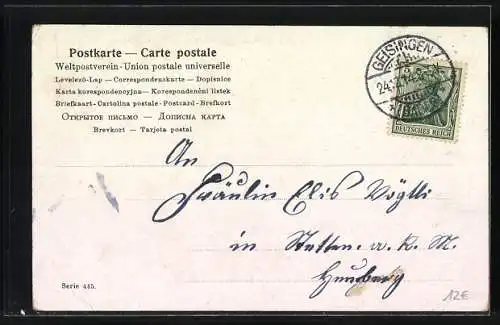 Postkarte — Carte postale
Weltpostverein - Union postale universelle
Levelező-Lap — Correspondenskarte — Dopisnice
Karta korespondencyjna — Korespondenční lístek
Briefkaart - Cartolina postale - Postcard - Brefkort
Открытое письмо — Дописна карта
Brevkort — Tarjeta postal
GEISINGEN
(BADEN)
DEUTSCHES REICH
An
Fräulein Elis Vögtli
in Stetten. a. k. M.
Serie 445.
12€